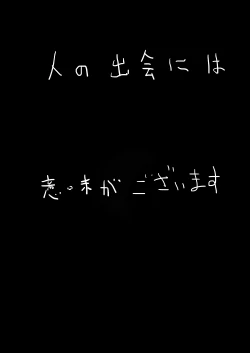 人の出会には
意味がございます